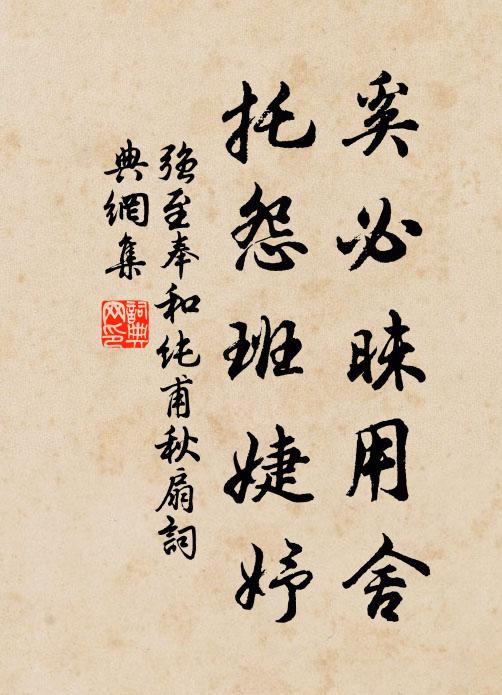 奚必昧用舍
托怨班婕妤
强至奉和纯甫秋扇詞
典網集
詞典网印